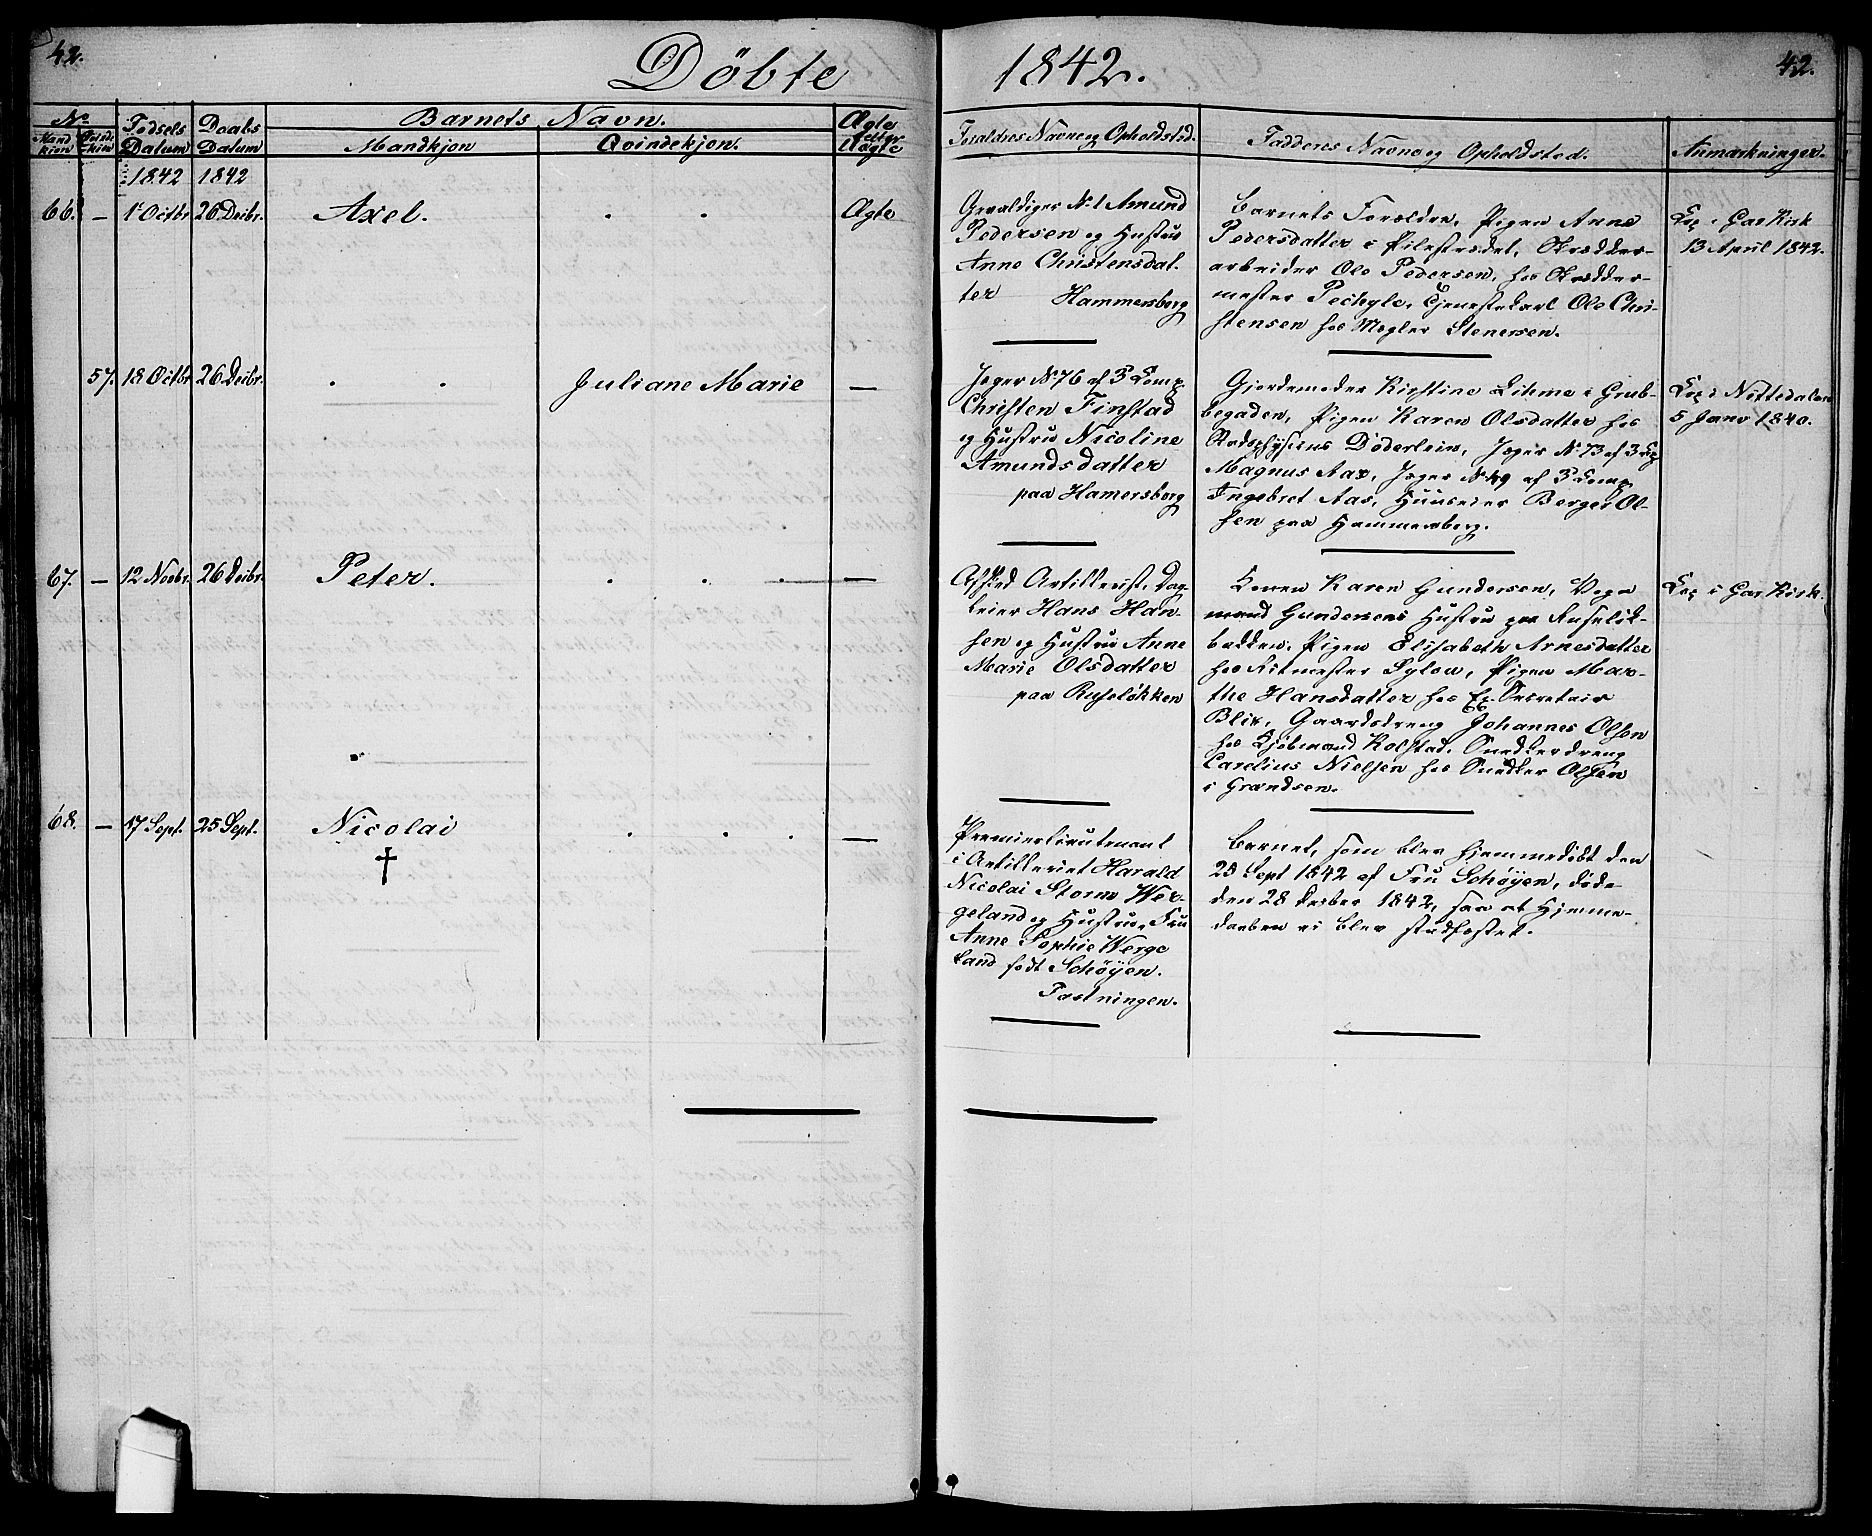 42.
Döbte
1842.
42.
No
Mand kjön
Qvinde kjön
Fodsels Datum
Daabs Datum
Barnets Navn.
Mandkjön
Qvindekjön.
Ægte eller Uægte
Foraldres Navne og Opholdsted.
Faddernes Navne og Opholdsted.
Anmærkninger.
1842 1842
66. – 1t Octbr 26 Decbr. Axel. Ægte
Gevaldiger No 1 Amund
Pedersen og Hustru
Anne Christensdat-
ter Hammersborg
Barnets Forældre, Pigen Anne
Pedersdatter i Pilestrædet, Skrædder-
arbeider Ole Pedersen, hos Skrædder-
mester Pechyle, Tjenestekarl Ole Chri-
stensen hos Mægler Stenersen.
Cop i Gar Kirk
13 April 1842.
57. 18 Octbr 26 Decbr. Juliane Marie –
Jæger No 76 af 3 Comp
Christen Finstad
og Hustru Nicoline
Amundsdatter
paa Hamersborg
Gjordemoder Kirstine Lihme i Grub-
begaden, Pigen Karen Olsdatter hos
Stadsphysicus Döderlein, Jæger No 73 af 3 Cp
Magnus Aas, Jæger No 49 af 3 Comp
Ingebret Aas, Huuseier Berger Ol-
sen paa Hammersborg.
Cop i Nittedalen
5 Janv 1840.
67. – 12 Novbr. 26 Decbr. Peter. –
Afsked Artillerist, Dag-
leier Hans Han-
sen og Hustru Anne
Marie Olsdatter
paa Ruseløkken
Konen Karen Gundersen, Vogn
mand Gundersens Hustru paa Ruselök-
bakken. Pigen Elisabeth Arnesdatter
hos Ritmester Sylow, Pigen Mar-
the Hansdatter hos Ex. Secretair
Blix, Gaardsdreng Johannes Olsen
hos Kjöbmand Kolstad. Snedkerdreng
Carelius Nielsen hos Snedker Olsen
i Grændsen.
Cop i Gar Kirk.
68. – 17 Sept. 25 Sept. Nicolai –
†
Premierlieutenant
i Artilleriet Harald
Nicolai Storm Wer-
geland og Hustru, Fru
Anne Sophie Werge
land født Schöyen.
Fæstningen.
Barnet, som blev hjemmedöbt den
25 Sept 1842 af Fru Schøyen, døde
den 28 1842, saa at Hjemme-
daaben ei blev stadfæstet.